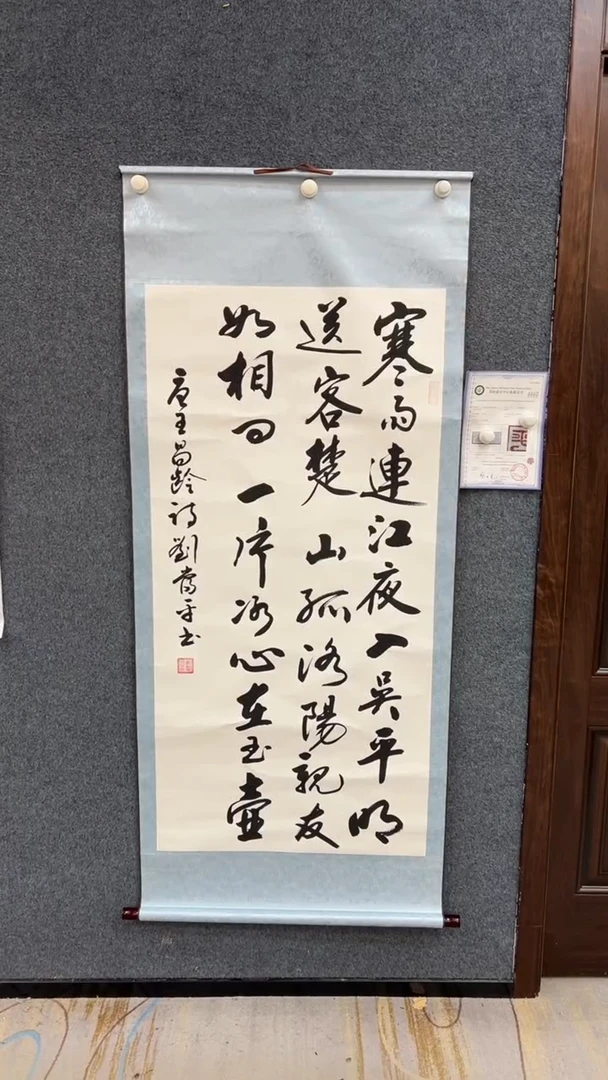 寒雨連江夜入吳平明
送客楚山孤洛陽親友
如相问一片冰心在玉壺
唐王昌齡詩劉喬平书